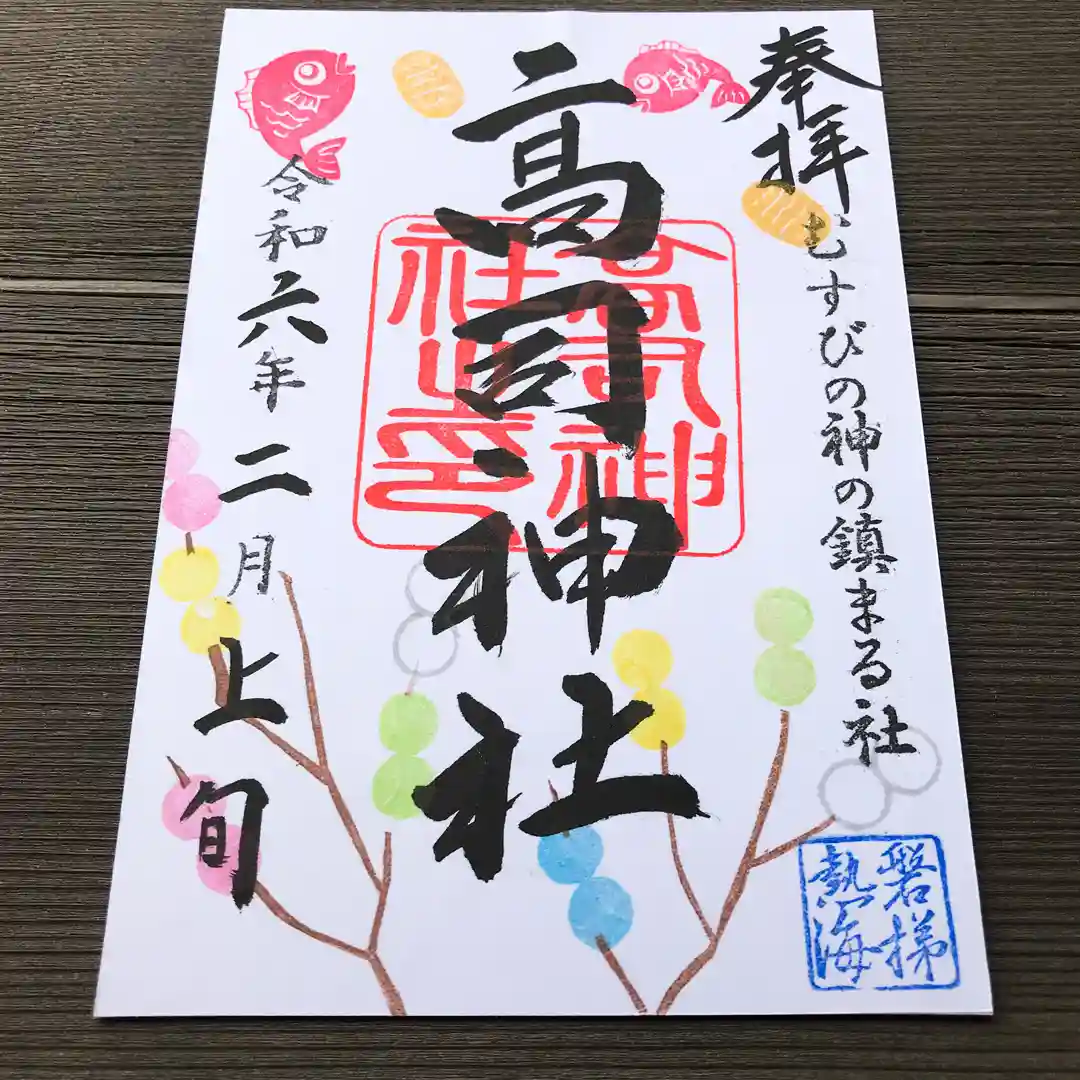 奉拝
むすびの神の鎮まる社
高司神社
高司神
社之印
令和六年二月上旬
磐梯
熱海